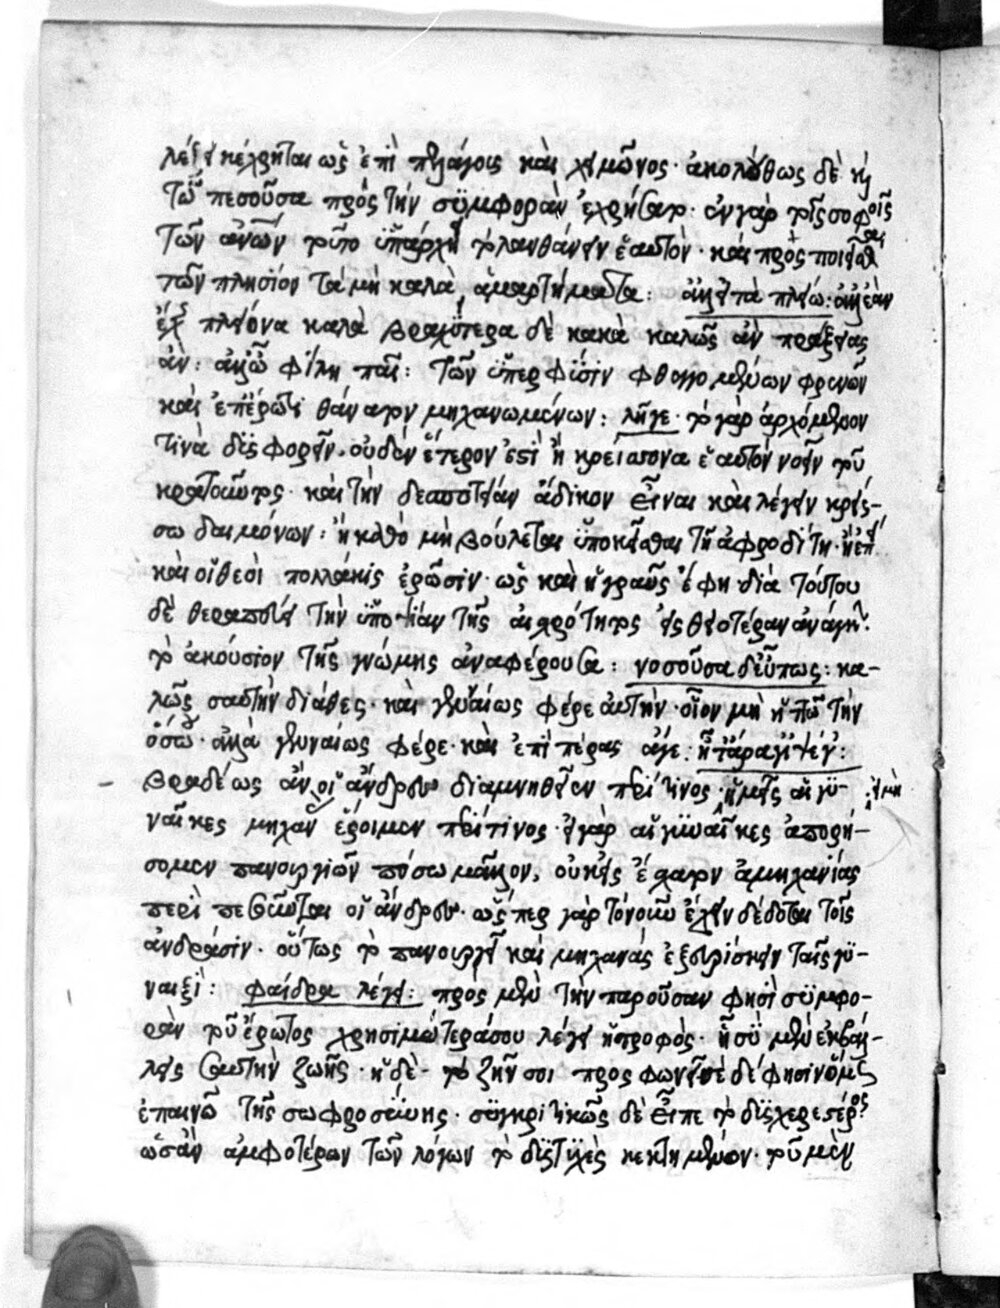 λέξει κέχρηται ὡς ἐπὶ πελάγοις καὶ χειμῶνος· ἀκολούθως δὲ καὶ
τῶ πεσοῦσα πρὸς τὴν συμφορὰν ἐχρήσατο· ἐν γὰρ τοῖς σοφοῖς
τῶν ἀνων τοῦτο ὑπάρχει τὸ λανθάνειν ἑαυτὸν· καὶ πρὸς ποιεῖσθαι
τῶν πλησίον τὰ μὴ καλὰ ἁμαρτήματα: ἀλλ' εἰ τὰ πλείω: ἀλλ' ἐὰν
ἔχης πλείονα καλὰ βραχύτερα δὲ κακὰ καλῶς ἂν πράξειας
ἄν: ἀλλ' ὦ φίλη παῖ: τῶν ὑπὲρ φύσιν φθεγγομένων φρενῶν
καὶ ἐπ' ἔρωτι θάνατον μηχανωμένων: λῆγε· τὸ γὰρ ἀρχόμενον
τινὰ δυσφορεῖν· οὐδὲν ἕτερόν ἐστι ἢ κρείττονα ἑαυτὸν νοεῖν τοῦ
κρατοῦντος· καὶ τὴν δεσποτείαν ἄδικον εἶναι καὶ λέγειν κρεί-
σσω δαιμόνων: ἢ καθὸ μὴ βούλεται ὑποκεῖσθαι τῆ ἀφροδίτη· ἢ ἐπεὶ
καὶ οἱ θεοὶ πολλάκις ἐρῶσιν· ὡς καὶ ἡ γραῦς ἔφη διὰ τούτου
δὲ θεραπεύει τὴν ὑποψίαν τῆς αἰσχρότητος εἰς θειοτέραν ἀνάγκην
τὸ ἀκούσιον τῆς γνώμης ἀναφέρουσα: νοσοῦσα δ' εὖ πως: κα-
λῶς σαυτὴν διάθες· καὶ γενναίως φέρε αὐτὴν· οἷον μὴ ἡττῶ τὴν
νόσω· ἀλλὰ γενναίως φέρε· καὶ ἐπὶ πέρας ἄγε: ἦ τἄρα γ' ὀψέ γ':
βραδέως ἂν οἱ ἄνδρες διαμνησθεῖεν περί τινος· ἡμεῖς αἱ γυ- : εἰ μὴ
ναῖκες μηχανὴν εὕροιμεν περί τινος· εἰ γὰρ αἱ γυναῖκες ἀπορή-
σομεν πανουργιῶν πόσω μᾶλλον, οὐκ εἰς ἔσχατον ἀμηχανίας
περιπεσοῦνται οἱ ἄνδρες· ὥσπερ γὰρ τὸ νοεῖν ἔχειν δέδοται τοῖς
ἀνδράσιν· οὕτως τὸ πανουργεῖν καὶ μηχανὰς ἐξευρίσκειν ταῖς γυ-
ναιξὶ: φαίδρα λέγει: πρὸς μὲν τὴν παροῦσαν φησὶ συμφο-
ρὰν τοῦ ἔρωτος χρησιμώτερά σου λέγει ἡ τροφὸς· ἢ σὺ μὲν ἐκβάλ-
λεις αὐτὴν ζωῆς· ἡ δὲ τὸ ζῆν σοι προσφωνεῖ σὲ δέ φησιν ὅμως
ἐπαινῶ τῆς σωφροσύνης· συγκριτικῶς δὲ εἶπε τὸ δυσχερέστερος
ὡσὰν ἀμφοτέρων τῶν λόγων τὸ δυστυχὲς κεκτημένων· τοῦ μὲν